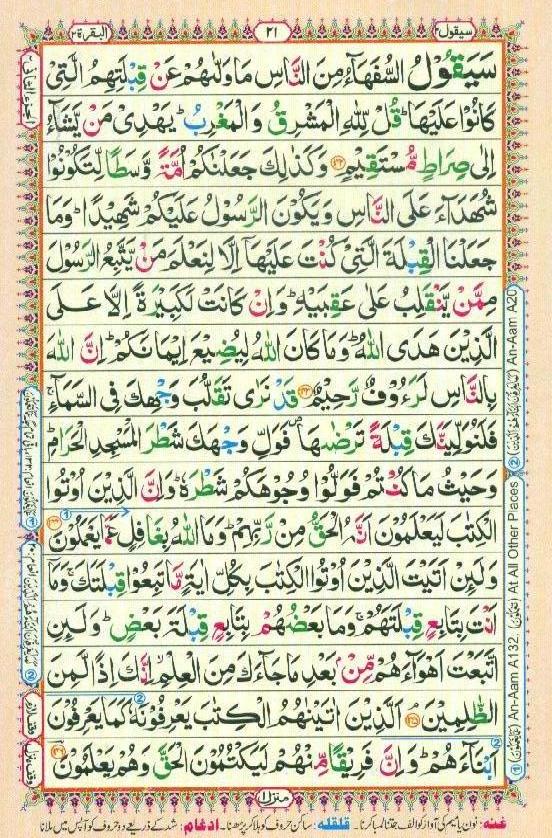 سيقول٢
٢١
البقرة٢
سَيَقُوۡلُ السُّفَهَآءُ مِنَ النَّاسِ مَا وَلّٰٮهُمۡ عَنۡ قِبۡلَتِهِمُ الَّتِىۡ
كَانُوۡا عَلَيۡهَا ؕ قُلۡ لِّلّٰهِ الۡمَشۡرِقُ وَالۡمَغۡرِبُ ؕ يَهۡدِىۡ مَنۡ يَّشَآءُ
اِلٰى صِرَاطٍ مُّسۡتَقِيۡمٍ ﴿۱۴۲﴾ وَكَذٰلِكَ جَعَلۡنٰكُمۡ اُمَّةً وَّسَطًا لِّتَکُوۡنُوۡا
شُهَدَآءَ عَلَى النَّاسِ وَيَكُوۡنَ الرَّسُوۡلُ عَلَيۡكُمۡ شَهِيۡدًا ؕ وَمَا
جَعَلۡنَا الۡقِبۡلَةَ الَّتِىۡ كُنۡتَ عَلَيۡهَآ اِلَّا لِنَعۡلَمَ مَنۡ يَّتَّبِعُ الرَّسُوۡلَ
مِمَّنۡ يَّنۡقَلِبُ عَلٰى عَقِبَيۡهِ ؕ وَاِنۡ كَانَتۡ لَكَبِيۡرَةً اِلَّا عَلَى
الَّذِيۡنَ هَدَى اللّٰهُ ؕ وَمَا كَانَ اللّٰهُ لِيُضِيۡعَ اِيۡمَانَكُمۡ ؕ اِنَّ اللّٰهَ
بِالنَّاسِ لَرَءُوۡفٌ رَّحِيۡمٌ ﴿۱۴۳﴾ قَدۡ نَرٰى تَقَلُّبَ وَجۡهِكَ فِى السَّمَآءِ ۚ
فَلَـنُوَلِّيَنَّكَ قِبۡلَةً تَرۡضٰٮهَا ۖ فَوَلِّ وَجۡهَكَ شَطۡرَ الۡمَسۡجِدِ الۡحَرَامِ ؕ
وَحَيۡثُ مَا كُنۡتُمۡ فَوَلُّوۡا وُجُوۡهَكُمۡ شَطۡرَهٗ ؕ وَاِنَّ الَّذِيۡنَ اُوۡتُوا
الۡكِتٰبَ لَيَـعۡلَمُوۡنَ اَنَّهُ الۡحَـقُّ مِنۡ رَّبِّهِمۡ ؕ وَمَا اللّٰهُ بِغَافِلٍ عَمَّا يَعۡمَلُوۡنَ ﴿۱۴۴﴾
وَلَئِنۡ اَتَيۡتَ الَّذِيۡنَ اُوۡتُوا الۡكِتٰبَ بِكُلِّ اٰيَةٍ مَّا تَبِعُوۡا قِبۡلَتَكَ ۚ وَمَآ
اَنۡتَ بِتَابِعٍ قِبۡلَتَهُمۡ ۚ وَمَا بَعۡضُهُمۡ بِتَابِعٍ قِبۡلَةَ بَعۡضٍ ؕ وَلَئِنِ
اتَّبَعۡتَ اَهۡوَآءَهُمۡ مِّنۡۢ بَعۡدِ مَا جَآءَكَ مِنَ الۡعِلۡمِ ۙ اِنَّكَ اِذًا لَّمِنَ
الظّٰلِمِيۡنَ ﴿۱۴۵﴾ اَلَّذِيۡنَ اٰتَيۡنٰهُمُ الۡكِتٰبَ يَعۡرِفُوۡنَهٗ كَمَا يَعۡرِفُوۡنَ
اَبۡنَآءَهُمۡ ؕ وَاِنَّ فَرِيۡقًا مِّنۡهُمۡ لَيَكۡتُمُوۡنَ الۡحَـقَّ وَهُمۡ يَعۡلَمُوۡنَ ﴿۱۴۶﴾
منزل١
غنه: نون یا میم کی آواز کو الف جتنا لمبا کرنا۔ قلقله: ساکن حروف کو ہلا کر پڑھنا۔ ادغام: شد کے ذریعے دو حروف کو آپس میں ملانا
② An-Aam A20
① An-Aam A132 At All Other Places